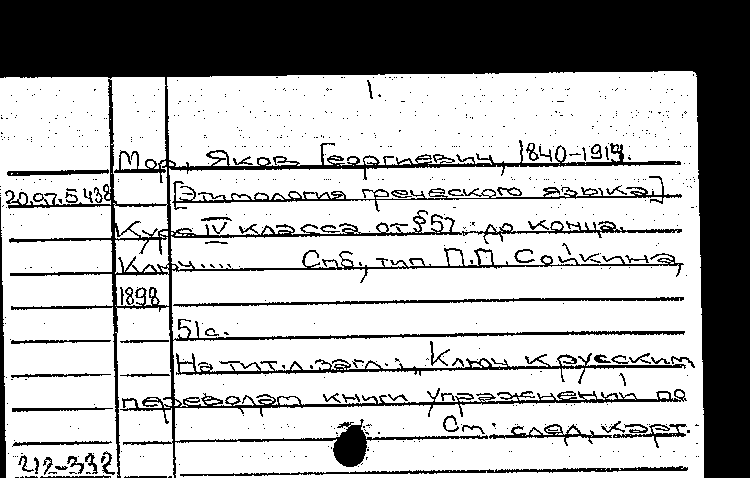 1.
Мор, Яков Георгиевич, 1840-1914.
20.97.5.438 [Этимология греческого языка.]
Курс IV класса от §57 до конца.
Ключ.... Спб., тип. П.П. Сойкина,
1898
51с.
На тит.л. загл.: Ключ к русским
переводам книги упражнений по
См. след. карт.
212-332